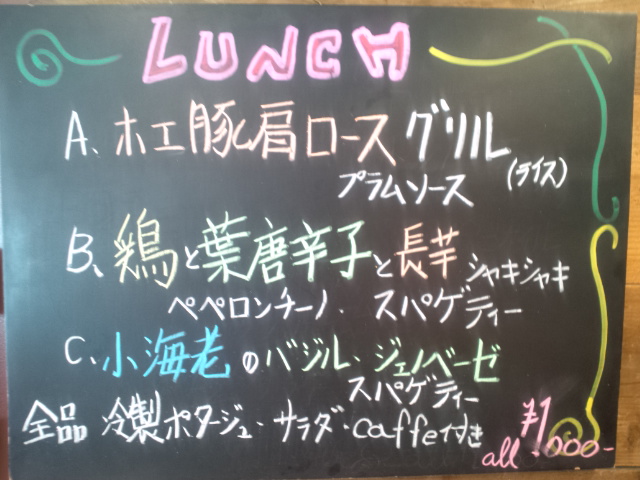 LUNCH
A、ホエー豚肩ロースグリル
プラムソース (ライス)
B、鶏と葉唐辛子と長芋シャキシャキ
ペペロンチーノ. スパゲティー
C、小海老のバジル・ジェノベーゼ
スパゲティー
全品 冷製ポタージュ・サラダ・caffe付き
all ¥1000-